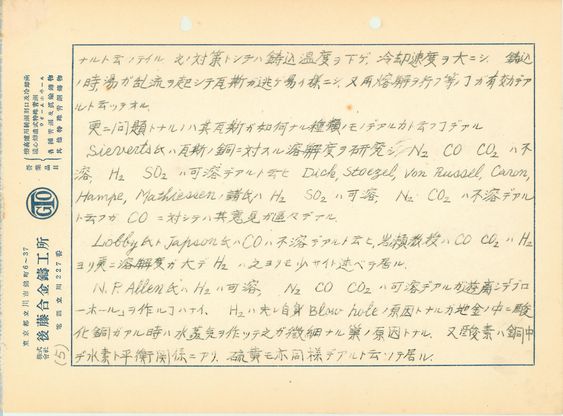 ナルト云ッテイル 之ノ対策トシテハ鋳込温度ヲ下ゲ、冷却速度ヲ大ニシ 鋳込
ノ時湯ガ乱流ヲ起シテ瓦斯ガ逃ゲ易イ様ニシ、又再熔解ヲ行フ等ノ事ガ有効デア
ルト云ッテオル。
更ニ問題トナルノハ其瓦斯ガ如何ナル種類ノモノデアルカト云フ事デアル
Sieverts氏ハ瓦斯ノ銅ニ対スル溶解度ヲ研究シ N₂ CO CO₂ ハ不
溶、H₂ SO₂ ハ可溶デアルト云ヒ Dick, Stoezel, von Russel, Caron,
Hampe, Mathiessenノ諸氏ハ H₂ SO₂ ハ可溶、N₂ CO₂ ハ不溶デアルト
云フガ CO ニ対シテハ其意見ガ区々デアル。
Lobby氏ト Japson氏ハ CO ハ不溶デアルト云ヒ、岩瀬教授ハ CO CO₂ ハ H₂
ヨリ更ニ溶解度ガ大デ H₂ ハ之ヨリモ少サイト述ベテ居ル。
N.P. Allen氏ハ H₂ ハ可溶、N₂ CO CO₂ ハ可溶デアルガ遊離シテブロ
ーホールヲ作ル事ハナイ、H₂ ハ夫レ自身 Blow holeノ原因トナルガ地金ノ中ニ酸
化銅ガアル時ハ水蒸気ヲ作ッテ之ガ微細ナル巣ノ原因トナル。又酸素ハ銅中
デ水素ト平衡関係ニアリ、硫黄モ亦同様デアルト云ッテ居ル。
営業品目
各種青銅及銑鉄鋳物
其他特殊青銅鋳物
GTO
株式会社 後藤合金鋳工所
東京都立川市錦町6~37
電話立川227番
(5)